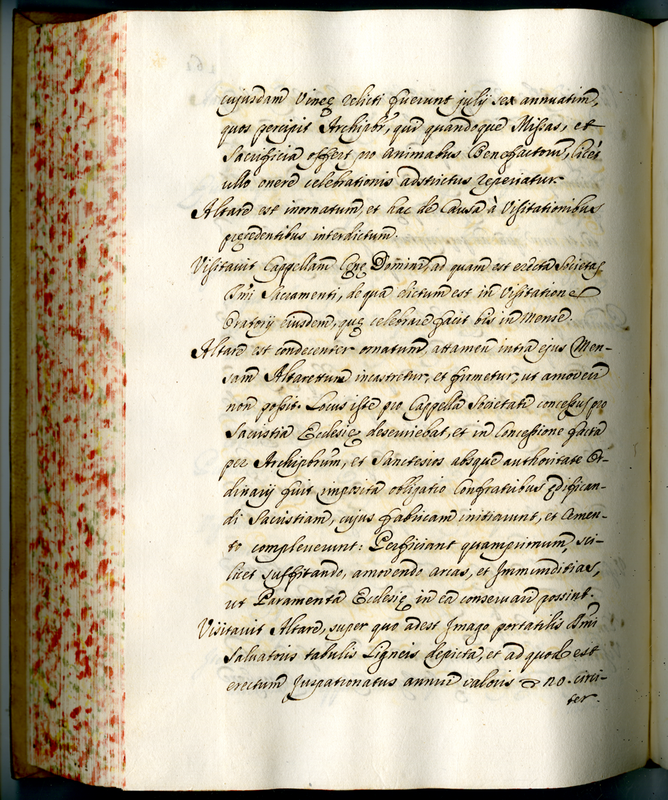 cujusdam Vineę relicti fuerunt julij sex annuatim,
quos percipit Archipbr, qui quandoque Missas, et
Sacrificia offert pro animabus Benefactorum, licet
ullo onere celebrationis adstrictus reperiatur.
Altare est inornatum, et hac de Causa à Visitationibus
pręcedentibus interdictum.
Visitavit Cappellam Cęnę Domini, ad quam est erecta Societas
Smi Sacramenti, de qua dictum est in Visitatione
Oratorij eiusdem, quę celebrare facit bis in Mense.
Altare est condecenter ornatum, attamen intra ejus Men-
sam Altarettum incastretur, et firmetur, ut amoveri
non possit. Locus iste pro Cappella Societati concessus pro
Sacristia Ecclesię deserviebat, et in Concessione facta
per Archipbrum, et Sanctesios absque authoritate Or-
dinarij fuit imposita obligatio Confratribus ędifican-
di Sacristiam, cujus fabricam initiarunt, et Cemen-
to compleverunt: Perficiant quamprimum, sci-
licet suffitando, amovendo arcas, et Immunditias,
ut Paramenta Ecclesię in ea conservari possint.
Visitavit Altare, super quo adest Imago portatilis Smi
Salvatoris tabulis Ligneis depicta, et ad quod est
erectum Juspatronatus annui valoris 20. circi-
ter.